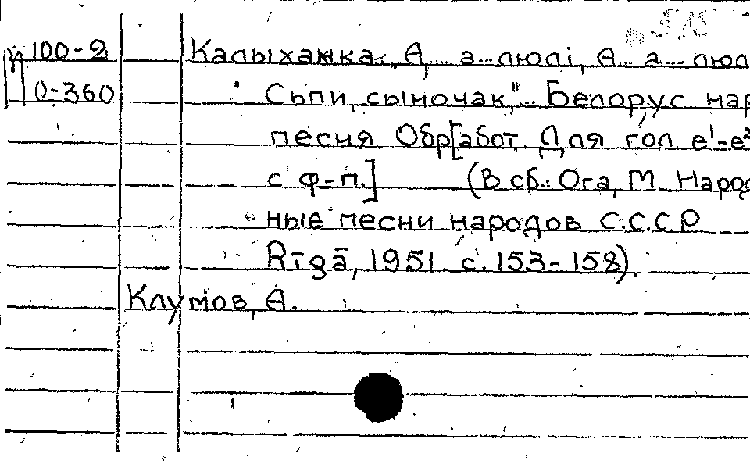 100-2 Калыханка. А, а-люлі, А а-люл
0-360 "Сьпи, сыночак" Белорус нар
песня Обр[абот. Для гол е¹-е²
с ф-п.] (В сб.: Ога, М. Народ
ные песни народов С.С.С.Р
Rīgā, 1951 с. 153-158).
Клумов, А.